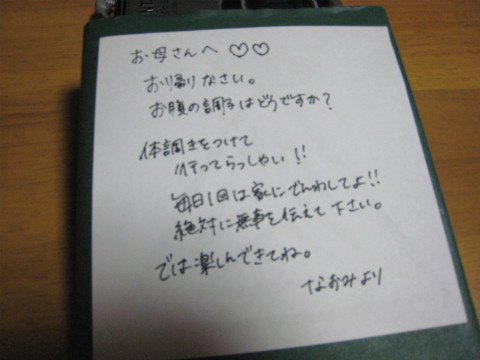 お母さんへ ♡♡
お帰りなさい。
お腹の調子はどうですか?
体調きをつけて
行ってらっしゃい!!
毎日1回は家にでんわしてよ!!
絶対に無事を伝えて下さい。
では楽しんできてね。
なおみより